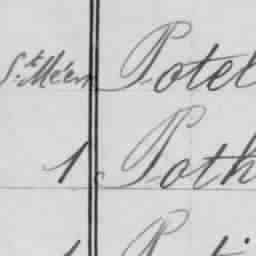 St. Méen Potel
1 Poth